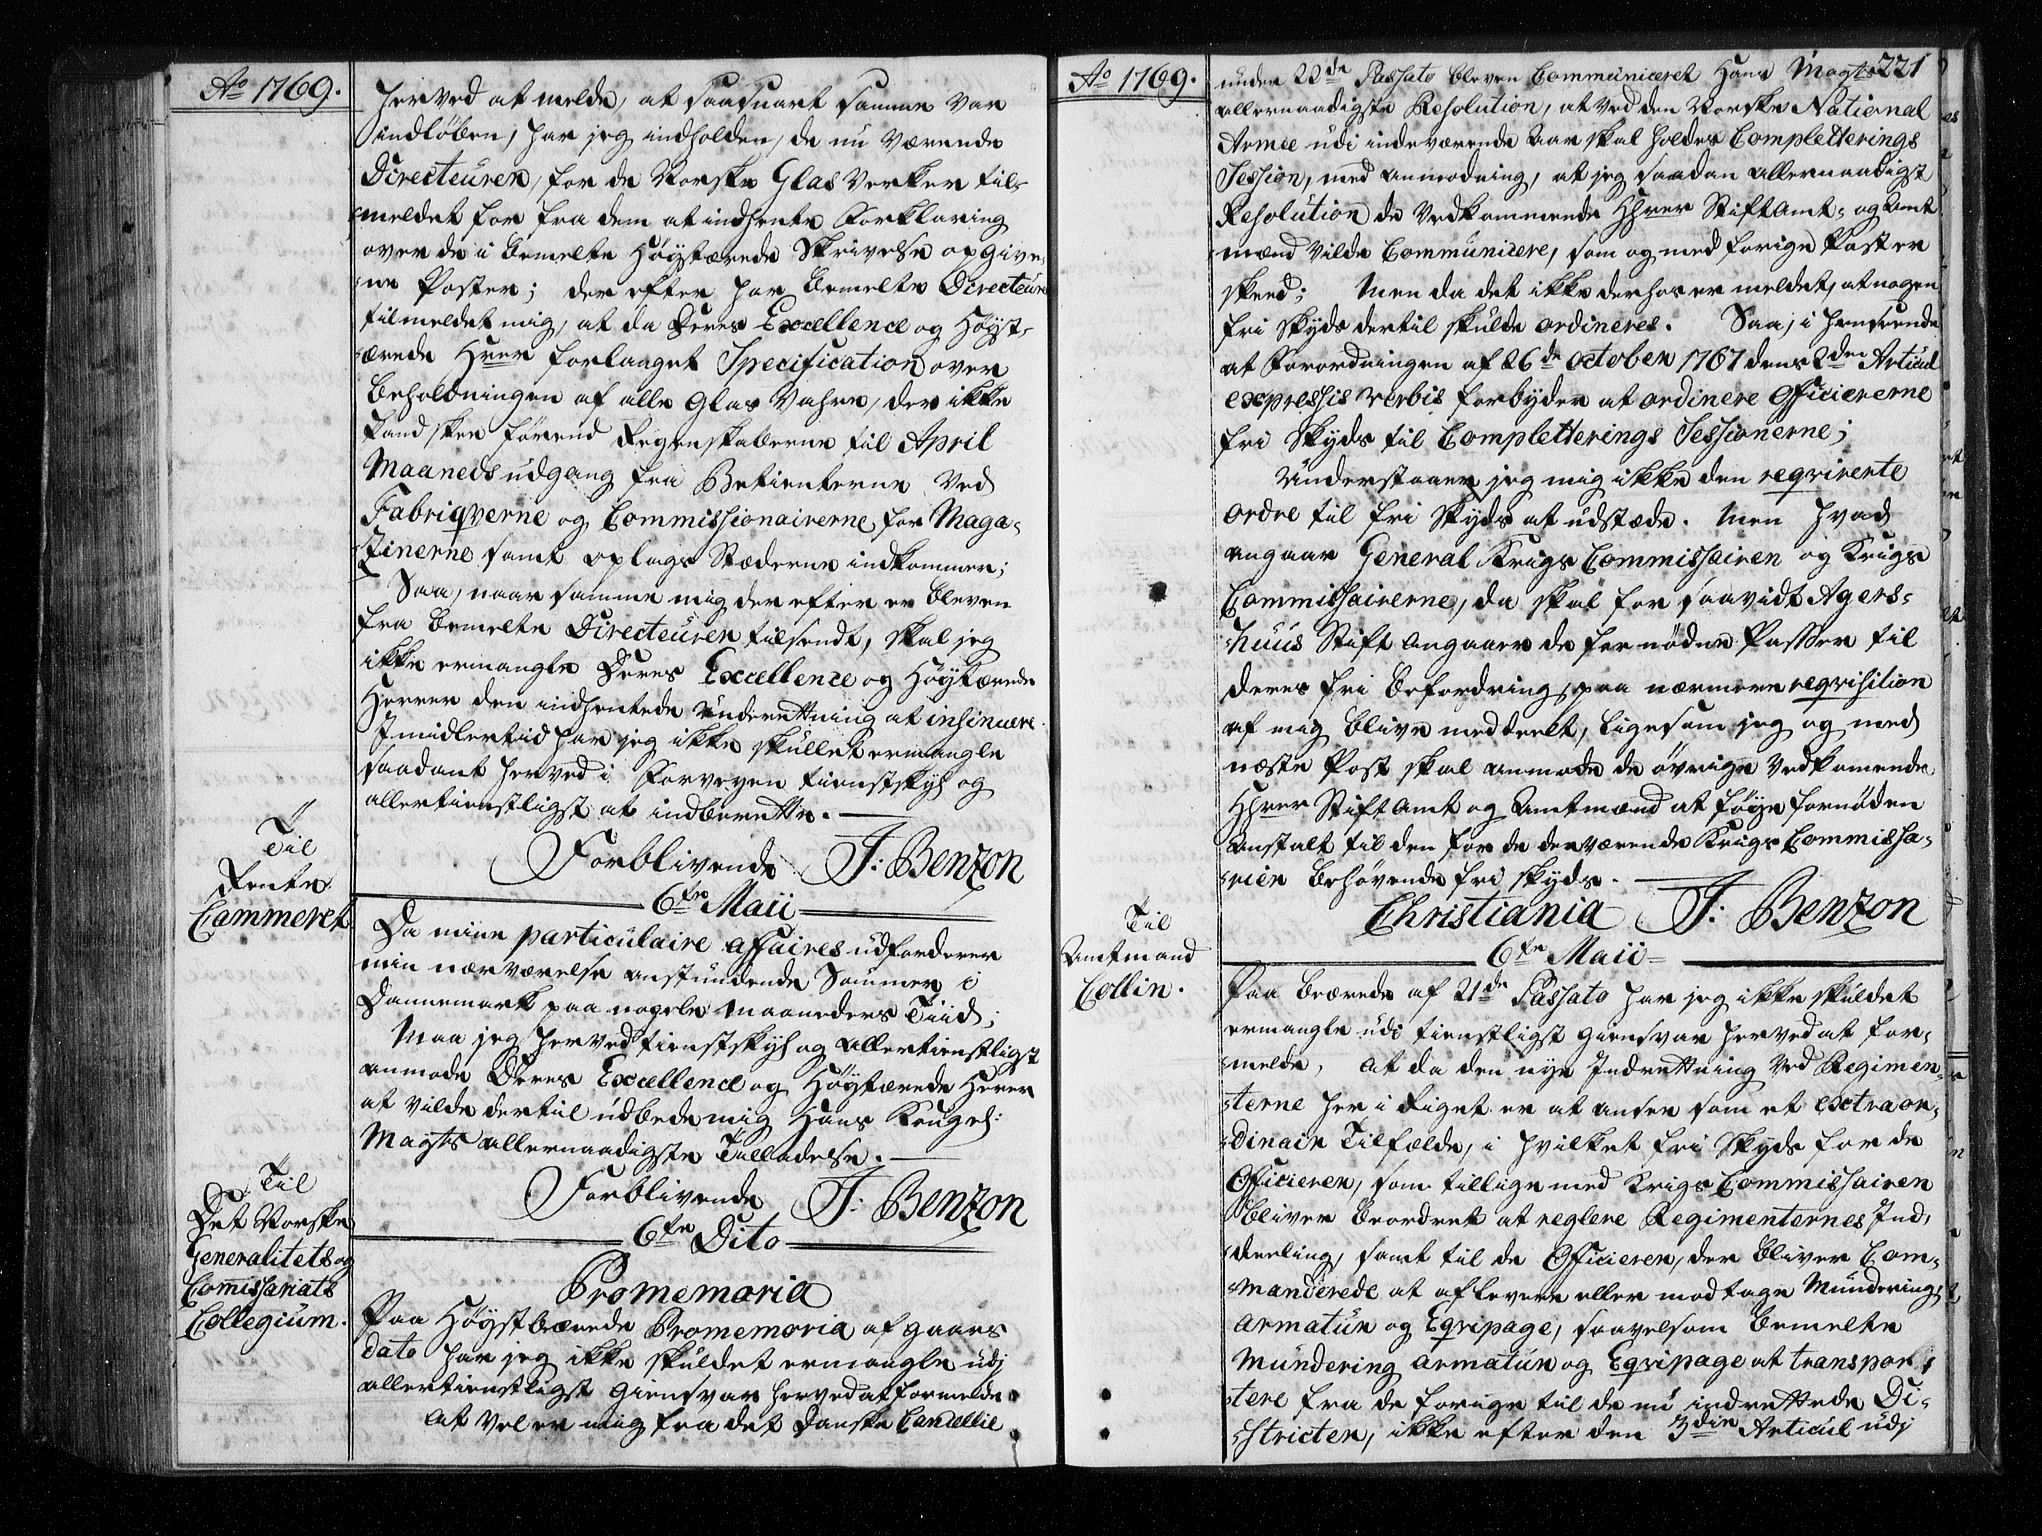 Ao 1769.
herved at melde, at saasnart samme var
indløben, har jeg indholden, de nu værende
Directeuren, for de Norske Glas Verker til-
meldet for fra dem at indhente Forklaring
over de i bemelte Høystærede Skrivelse opgive-
ne Poster; der efter har bemelte Directeurs
tilmeldet mig, at da Deres Excellence og Høyst-
ærede Hrer forlanget Specification over
beholdningen af alle Glas Vahre, der ikke
kand skee førend Regenskaberne til April
Maaneds udgang fra Betienterne ved
Fabriqverne og Commissionairerne for Maga-
zinerne samt oplags Stæderne indkommer;
Saa, naar samme mig der efter er bleven
fra bemelte Directeuren tilsendt, skal jeg
ikke ermangle Deres Excellence og Høystærede
Herrer den indhentede Underettning at insinuere.
Imidlertid har jeg ikke skullet ermangle
saadant herved i Forveyen tienstskyl og
allertienstligst at indberette.
Forblivende J: Benzon
6te Maii
Til
Rente
Cammeret
Da mine particulaire affaires udfordrer
min nærværelse anstundende Sommer i
Dannemark paa nogele Maaneders Tiid;
Maa jeg herved tienstskyl og allertienstligst
anmode Deres Excellence og Høystærede Herrer
at vilde dertil udbede mig Hans Kongel:
Mayts allernaadigste Tilladelse.
Forblivende J: Benzon
6te Dito
Til
Det Norske
Generalitets og
Comissariats
Collegium.
Promemoria
Paa Høystbærede Promemoria af gaars
dato har jeg ikke skuldet ermangle udj
allertienstligst Giensvar herved at formelde
At vel er mig fra det Danske Cancellie
Ao 1769.
221
under 22de Passato bleven Communiceret Hans Mayts
allernaadigste Resolution, at ved den Norske National
Armee udi indeværende Aar skal holdes Completterings
Session, med anmodning, at jeg saadan allernaadigst
Resolution de Vedkommende Hhrer Stiftamt- og Amt
mænd vilde Communicere, som og med forige Post er
skeed; Men da det ikke derhos er meldet, at nogen
fri skyds dertil skulde ordineres. Saa, i henseende
at Forordningen af 26de October 1767 dens 2den Articul
expressis verbis forbyder at ordinere Officiererne
fri Skyds til Completterings Sessionerne;
Understaaer jeg mig ikke den reqvirerte
ordre til fri Skyds at udstæde. Men hvad
angaar General Krigs Commissairen og Krigs
Commissairerne, da skal for saavidt Agers-
huus Stift angaaer de fornødne Passer til
deres fri befordring, paa nærmere reqvisition
af mig blive meddeelt, ligesom jeg og med
næste Post skal anmode de øvrige Vedkomende
Hhrer Stiftamt og Amtmænd at føye fornøden
Anstalt til den for de derværende Krigs Commissa-
rier behøvende fri skyds.
Christiania J: Benzon
6te Maii
Til
Amtmand
Collin.
Paa bærede af 21de Passato har jeg ikke skuldet
ermangle udi tienstligst Giensvar herved at for-
melde, At da den nye Indrettning ved Regimen-
terne her i Riget er at ansee som et extraor-
dinair Tilfælde, i hvilket fri Skyds for de
Officieren, som tillige med Krigs Commissairen
bliver beordret at reglere Regimenternes Ind-
deeling, samt til de Officieren, der bliver Com-
manderede at aflevere eller modtage Mundering,
Armatur og Eqvipage, saavelsom bemelte
Mundering Armatur og Eqvipage at transpor-
tere fra de forige til de nu indrettede Di-
stricter, ikke efter den 3die Articul udj